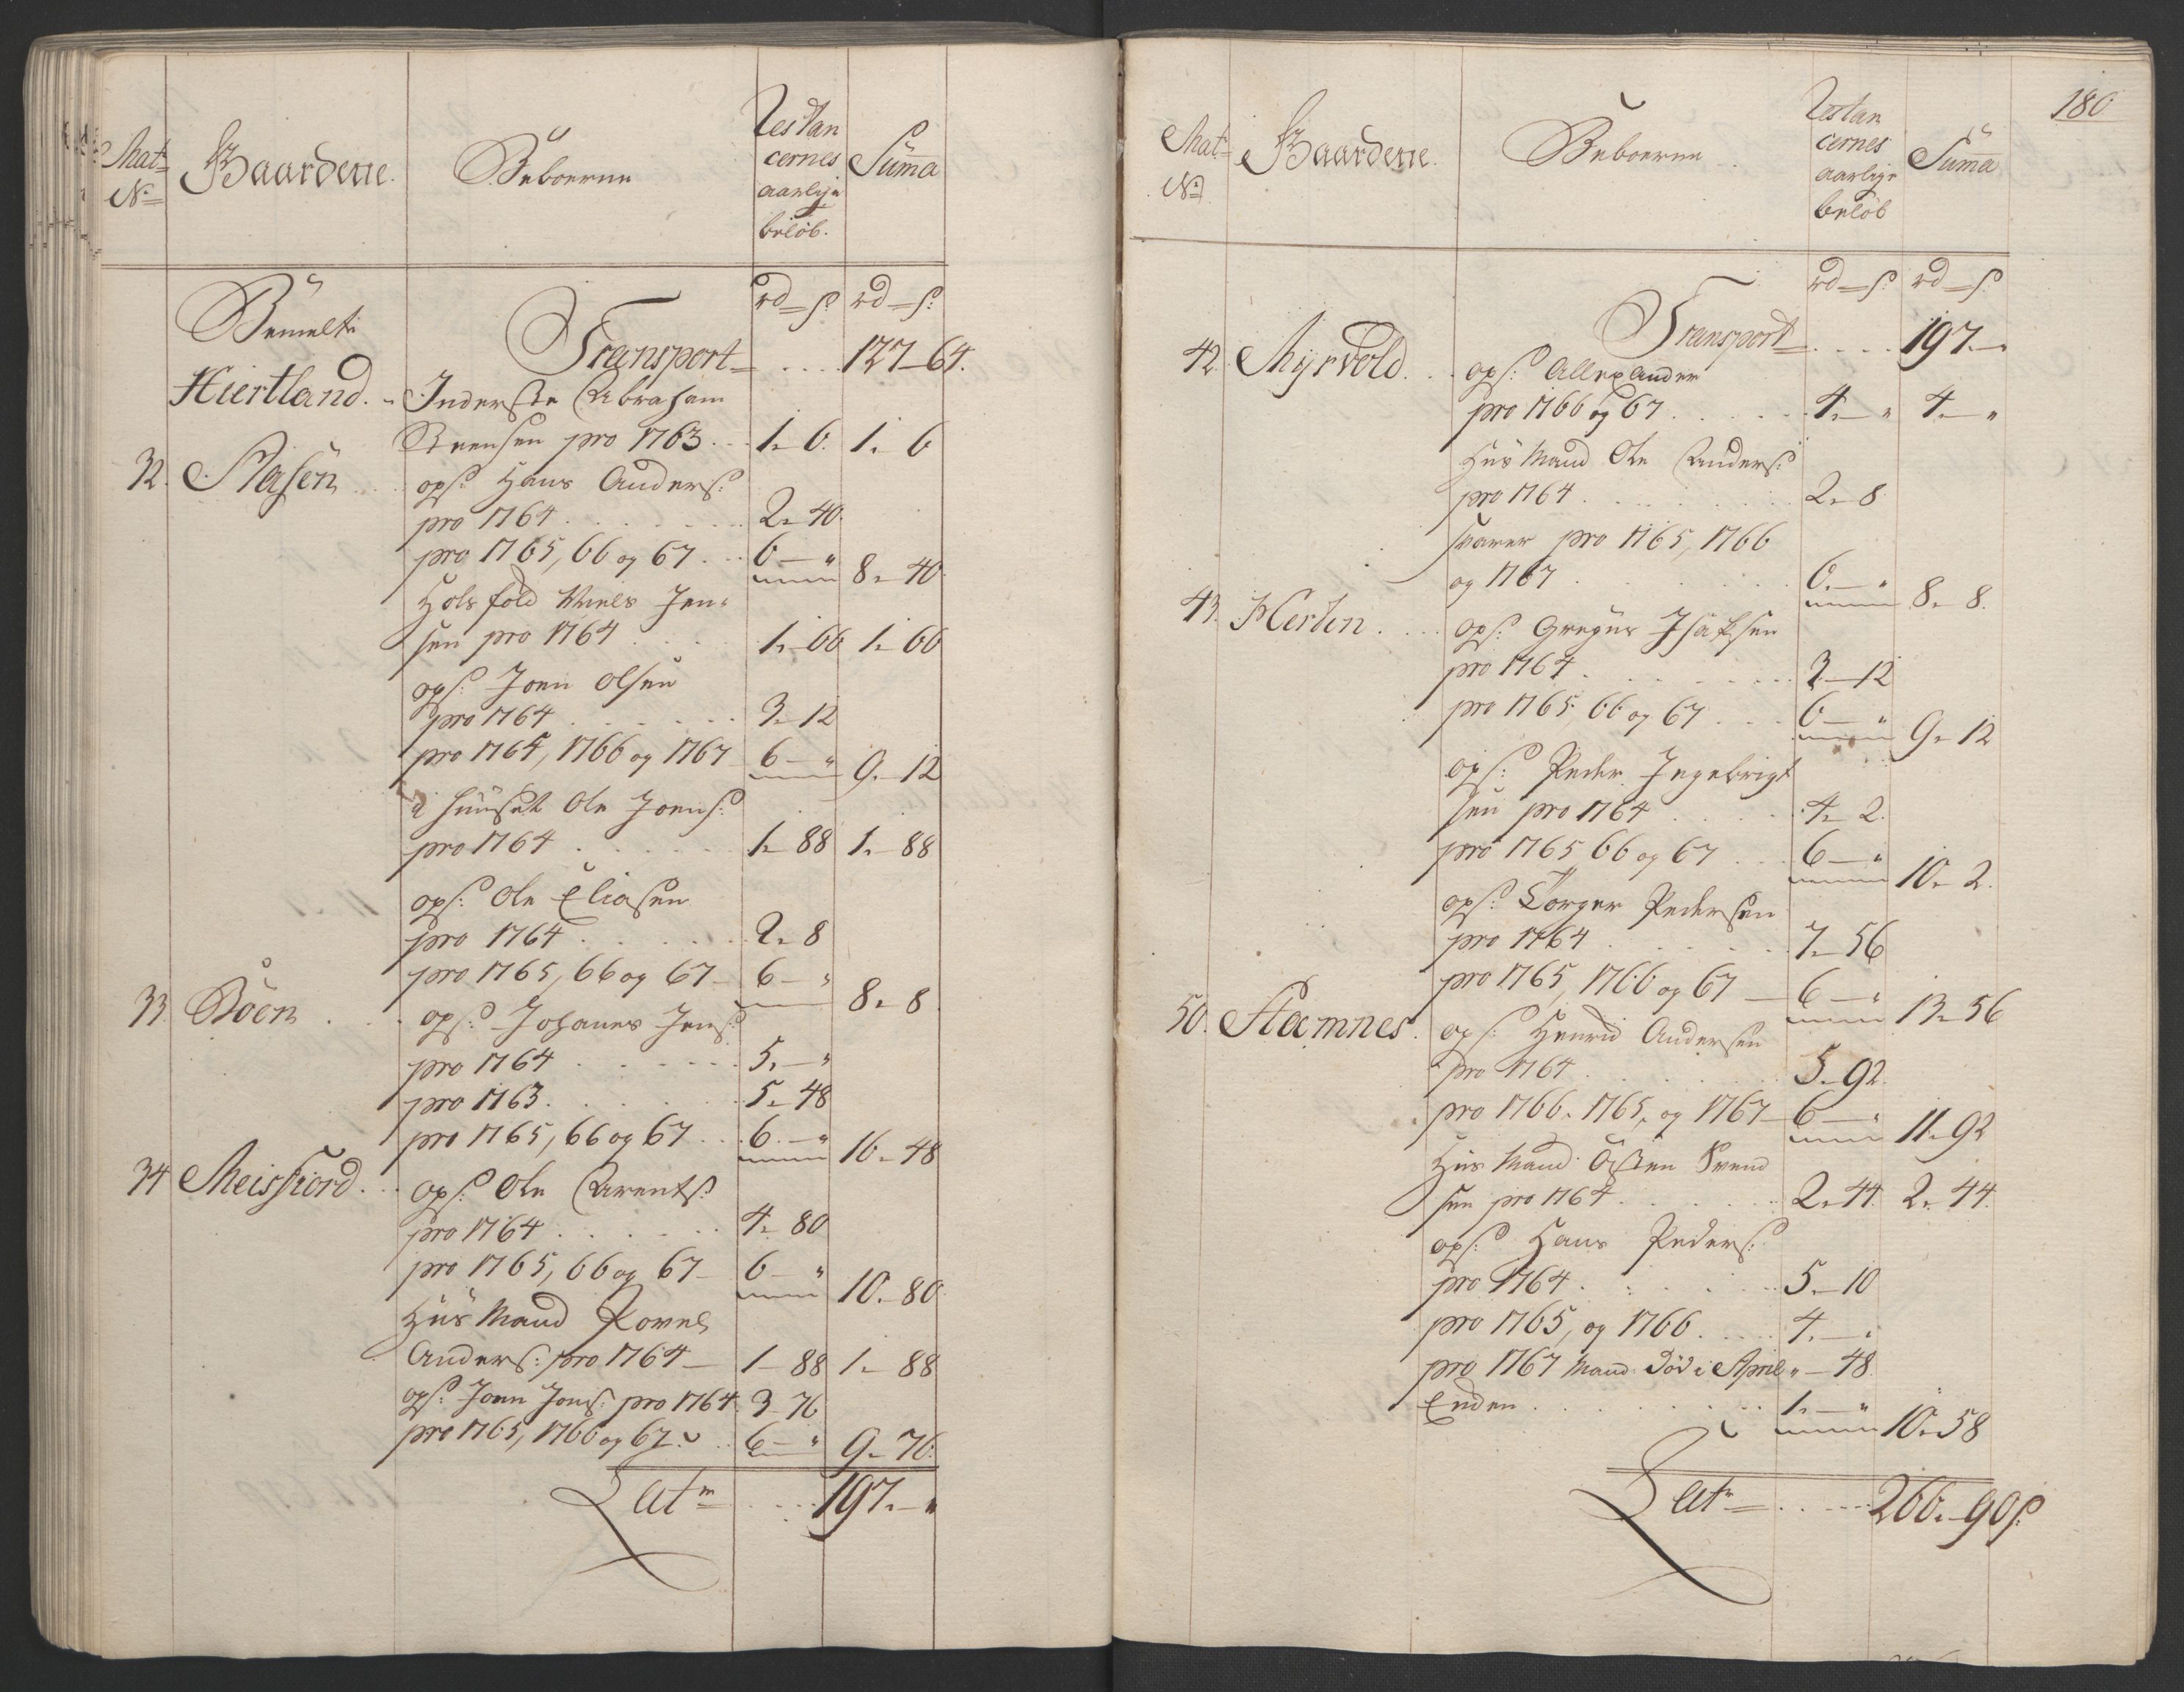 Mat=
No
Gaardene.
Beboerne
Restan
cernes
aarlige
beløb.
Summa
rd — s: rd — s:
Bemelte
Transport . . . . 127 — 64.
Hiertland. Inderste Abraham
Svensen pro 1763 . . 1. 6. 1. 6
32. Slasen ops: Hans Anders:
pro 1764 . . . . 2. 40.
pro 1765, 66 og 67 . . 6 — " 8. 40.
Niels Jen=
sen pro 1764 . . . . 1. 66 1. 66
ops: Joen Olsen
pro 1764 . . . . 3. 12
pro 1765, 1766 og 1767 6 — " 9. 12
i Huuset Ole Joens:
pro 1764 . . . . 1. 88 1. 88
ops: Ole Eliasen
pro 1764 . . . . 2. 8
pro 1765, 66 og 67 6 — " 8. 8.
33. Böen . . ops: Johanes Jens:
pro 1764 . . . . 5. — "
pro 1763. . . . . 5. 48
pro 1765, 66 og 67 . . 6. — " 16. 48
34 Meisfiord . . ops: Ole Arents:
pro 1764 . . . . 4. 80
pro 1765, 66 og 67 — 6 — " 10. 80
Huus Mand Povel
Anders: pro 1764 — 1 — 88 1. 88
ops: Joen Jons: pro 1764. 3 76
pro 1765, 1766 og 67. . . 6 — " 9. 76.
Lat= . . . . 197. — "
180
Mat=
No
Gaardene.
Beboerne
Restan
cernes
aarlige
beløb
Summa
rd — s: rd — s:
Transport . . . . 197. —
42. Myrvold. . . ops: Allexander
pro 1766 og 67 . . . . 4. — " 4. — "
Huus Mand Ole Anders:
pro 1764 . . . . 2. 8
svarer pro 1765, 1766
og 1767 . . . . 6. — " 8. 8.
43. Herten . . . ops: Gregus Isaksen
pro 1764 . . . . 3 — 12
pro 1765, 66 og 67 . . . 6 — " 9. 12
ops: Peder Ingebrigt
sen pro 1764 . . . . 4. 2.
pro 1765 66 og 67 . . . 6 — " 10. 2.
ops: Torger Pedersen
pro 1764 . . . . 7. 56
pro 1765, 1766 og 67 — 6 — " 13. 56
50. Stamnes. ops: Henrich Andersen
pro 1764 . . . . 5. 92.
pro 1766. 1765, og 1767 — 6 — " 11. 92
Huus Mand Östen Svend
sen pro 1764 . . . . 2. 44. 2. 44.
ops: Hans Peders:
pro 1764 . . . . 5. 10
pro 1765, og 1766 . . . . 4. — "
pro 1767 Mand død i April " — 48.
Enden . . . . 1. — " 10. 58
Lat= . . . . 266. 90 s: